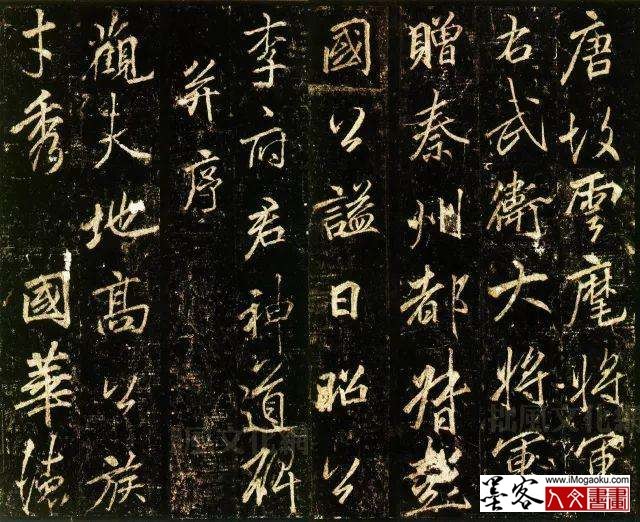 唐故雲麾將軍
右武衛大將軍
贈秦州都督彭
國公謚曰昭公
李府君神道碑
并序
觀夫地高公族
才秀 國華德
拙風文化網
墨客
www.iMogaoku.com
人文書畫